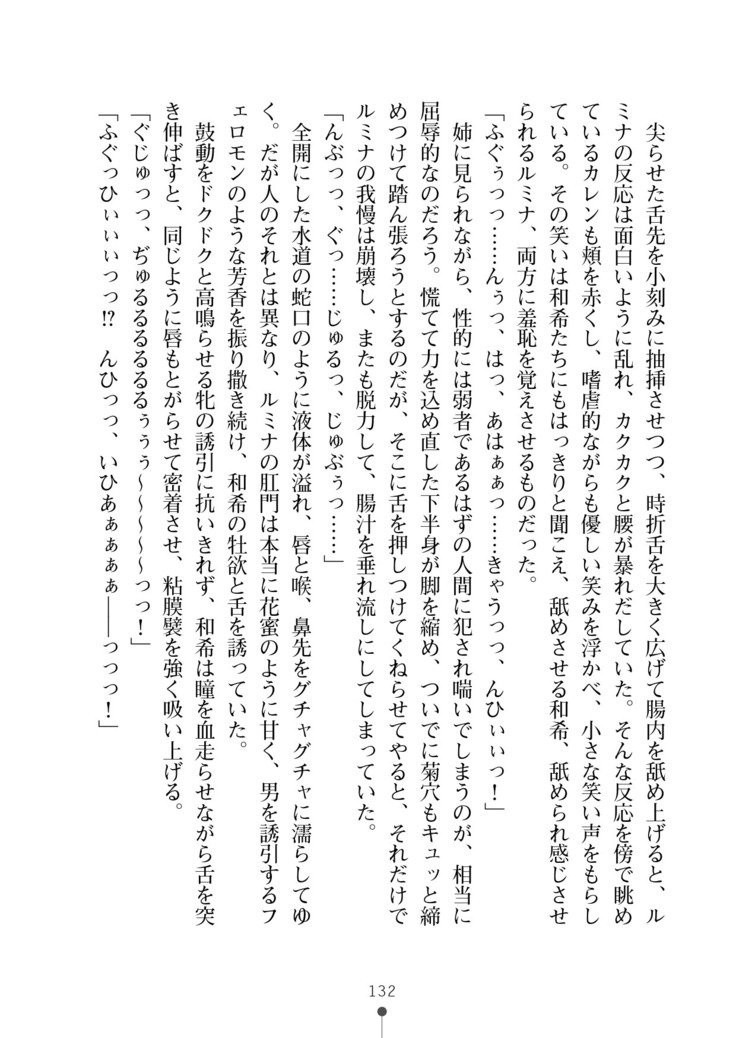 尖らせた舌先を小刻みに抽挿させつつ、時折舌を大きく広げて腸内を舐め上げると、ル
ミナの反応は面白いように乱れ、カクカクと腰が暴れだしていた。そんな反応を傍で眺め
ているカレンも頬を赤くし、嗜虐的ながらも優しい笑みを浮かべ、小さな笑い声をもらし
ている。その笑いは和希たちにもはっきりと聞こえ、舐めさせる和希、舐められ感じさせ
られるルミナ、両方に羞恥を覚えさせるものだった。
「ふぐぅっっ……んぅっ、はっ、あはぁぁっ……きゃうっっ、んひぃぃっ！」
　姉に見られながら、性的には弱者であるはずの人間に犯され喘いでしまうのが、相当に
屈辱的なのだろう。慌てて力を込め直した下半身が脚を縮め、ついでに菊穴もキュッと締
めつけて踏ん張ろうとするのだが、そこに舌を押しつけてくねらせてやると、それだけで
ルミナの我慢は崩壊し、またも脱力して、腸汁を垂れ流しにしてしまっていた。
「んぶっっ、ぐっ……じゅるっ、じゅぶぅっ……」
　全開にした水道の蛇口のように液体が溢れ、唇と喉、鼻先をグチャグチャに濡らしてゆ
く。だが人のそれとは異なり、ルミナの肛門は本当に花蜜のように甘く、男を誘引するフ
ェロモンのような芳香を振り撒き続け、和希の牡欲と舌を誘っていた。
　鼓動をドクドクと高鳴らせる牝の誘引に抗いきれず、和希は瞳を血走らせながら舌を突
き伸ばすと、同じように唇もとがらせて密着させ、粘膜襞を強く吸い上げる。
「ぐじゅっっ、ぢゅるるるるるぅぅぅ～～～～～っっ！」
「ふぐっひぃぃぃっっ!?　んひっっ、いひあぁぁぁぁ――っっっ！」
132